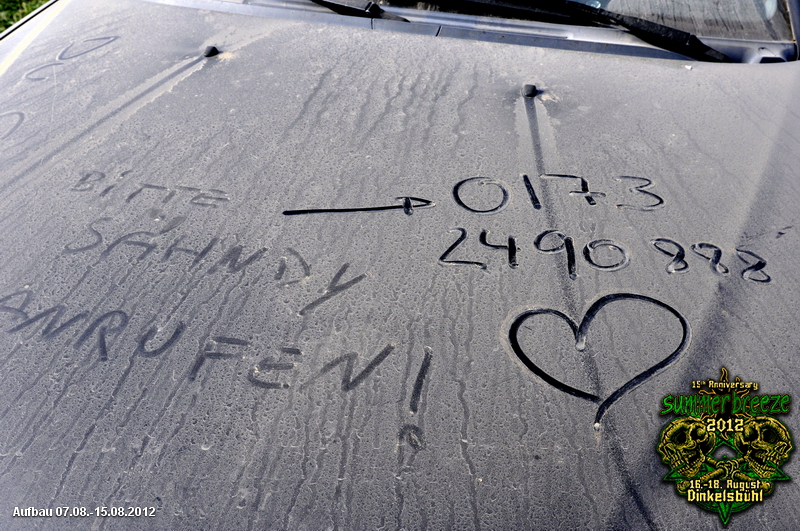 BITTE
SAHNDY
ANRUFEN!
→ 0173
2490888
15th Anniversary
summer breeze
2012
16.-18. August
Dinkelsbühl
Aufbau 07.08.-15.08.2012